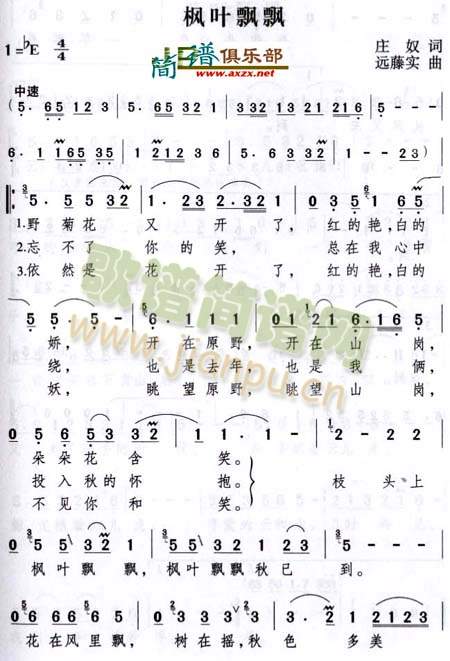 枫叶飘飘
简谱俱乐部
www.axzx.net
1=♭E 4/4
庄奴 词
远藤实 曲
中速
(5. 65 123 | 5. 65 321 | 1 3213 21216 |
6. 1 165 35 | 1 21236 | 5. 65 32 | 1 - - 23)
5. 55 532 | 1. 23 2.321 | 0 35 1 65
1.野菊花 又 开 了, 红的艳,白的
2.忘不了 你的 笑, 总在我心中
3.依然是 花 开 了, 红的艳,白的
5 55. - | 6. 111 | 01216.165
娇, 开在原野,开在 山 岗,
绕, 也是去年,也是 我 俩,
妖, 眺望原野,眺望 山 岗,
0 56 53 32 | 1 1. - | 2 - 22
朵朵花 含 笑。
投入秋的怀 抱。 枝 头 上
不见你和 笑。
0 55 5 32 | 1. 15 3532 | 1 - - -
枫叶 飘 飘, 枫叶飘飘秋已 到。
0 66 665 | 0 33 23 | 21232 2176
花在风里飘, 树在摇,秋 色 多 美
歌谱简谱网
www.jianpu.cn